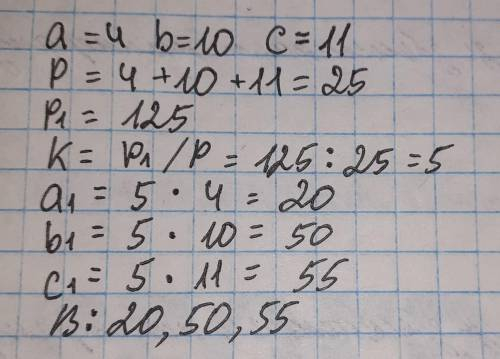 a = 4 b = 10 c = 11
P = 4 + 10 + 11 = 25
P₁ = 125
K = P₁ / P = 125 : 25 = 5
a₁ = 5 · 4 = 20
b₁ = 5 · 10 = 50
c₁ = 5 · 11 = 55
В: 20, 50, 55